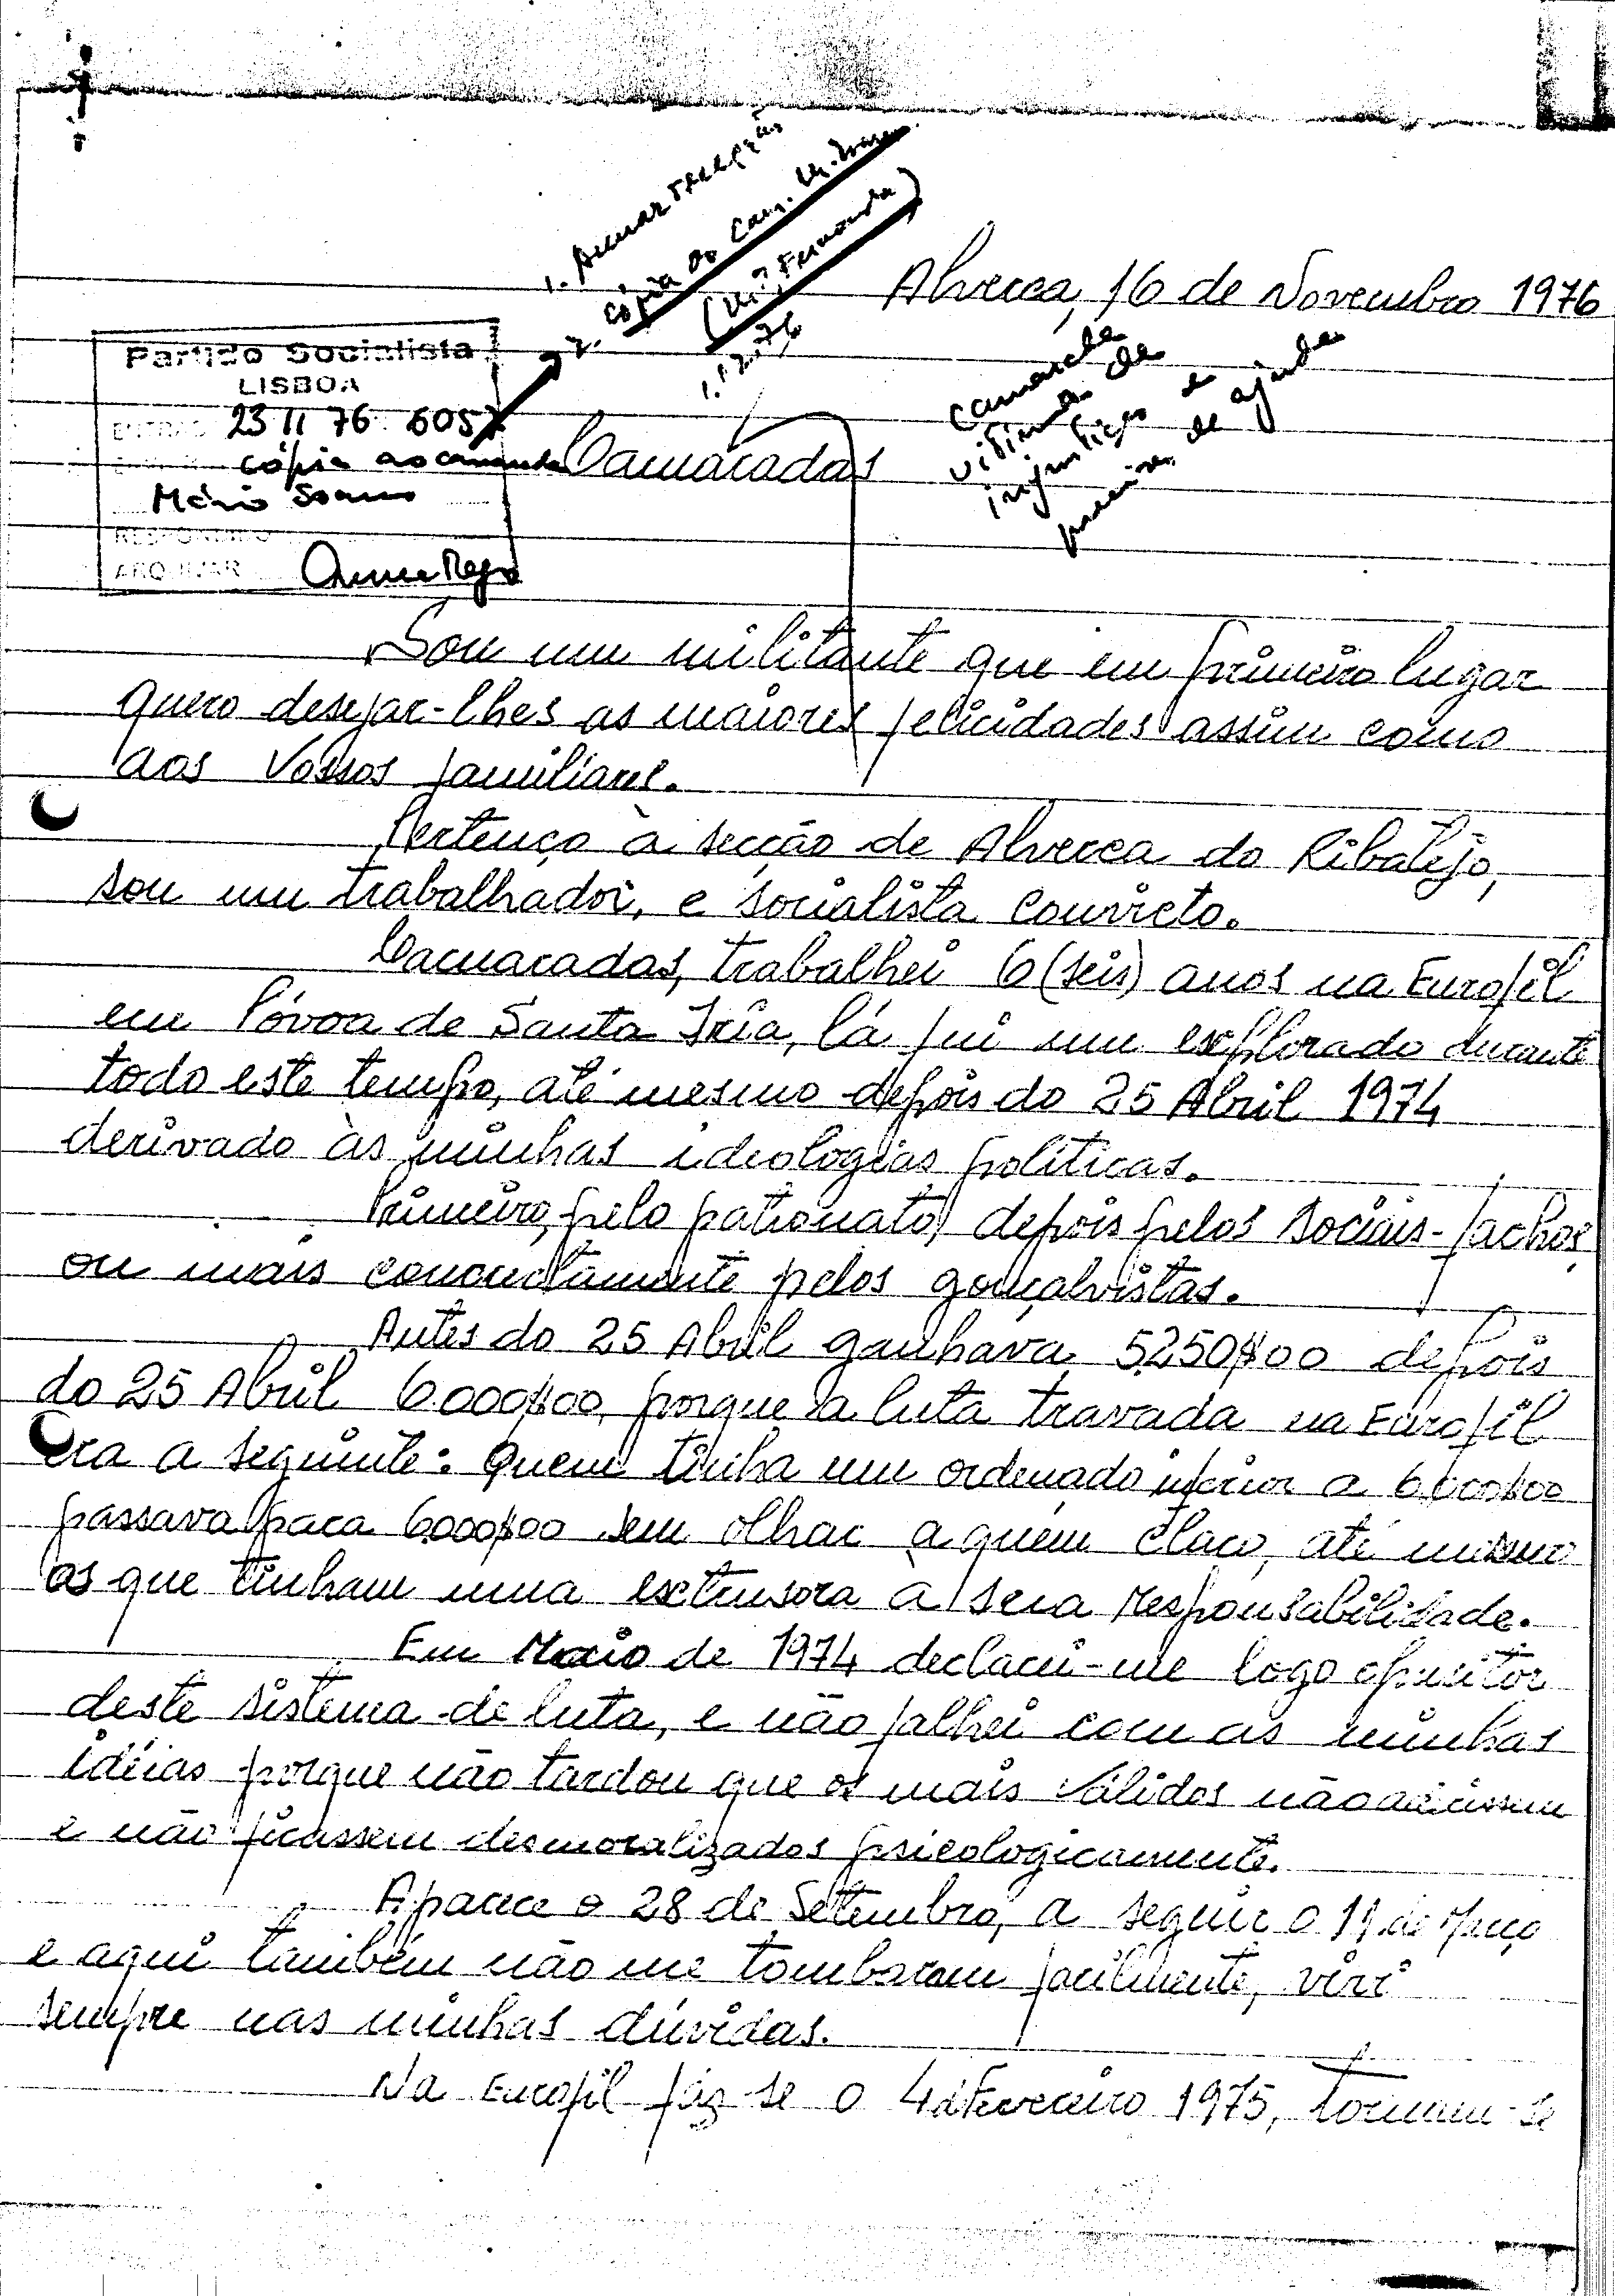 1. Acusar recepção
2. cópia ao Cam.
(Mª Fernanda)
1.12.76
Alverca, 16 de Novembro 1976
Partido Socialista
LISBOA
23 11 76 6057
cópia ao camarada
Mário Soares
RESPONDIDO
ARQUIVAR
Camaradas
camarada
vitima de
injustiças e
precisa de ajuda
Sou um militante que em primeiro lugar
quero desejar-lhes as maiores felicidades assim como
aos Vossos familiares.
Pertenço à secção de Alverca do Ribatejo,
sou um trabalhador, e socialista convicto.
Camaradas, trabalhei 6 (seis) anos na Eurofil
em Póvoa de Santa Iria, lá fui um explorado durante
todo este tempo, até mesmo depois do 25 Abril 1974
derivado às minhas ideologias políticas.
Primeiro, pelo patronato, depois pelos sociais-fachos,
ou mais concretamente pelos gonçalvistas.
Antes do 25 Abril ganhava 5250$00 depois
do 25 Abril 6.000$00, porque a luta travada na Eurofil
era a seguinte: Quem tinha um ordenado inferior a 6.000$00
passava para 6.000$00 sem olhar a quem claro, até mesmo
os que tinham uma extensora a sua responsabilidade.
Em Maio de 1974 declarei-me logo opusitor
deste sistema de luta, e não falhei com as minhas
idéias porque não tardou que os mais válidos não
e não ficassem desmoralizados psicologicamente.
Aparece o 28 de Setembro, a seguir o 11 de Março
e aqui também não me tombaram facilmente, vivi
sempre nas minhas dúvidas.
Na Eurofil faz-se o 4 de Fevereiro 1975, tornam-se